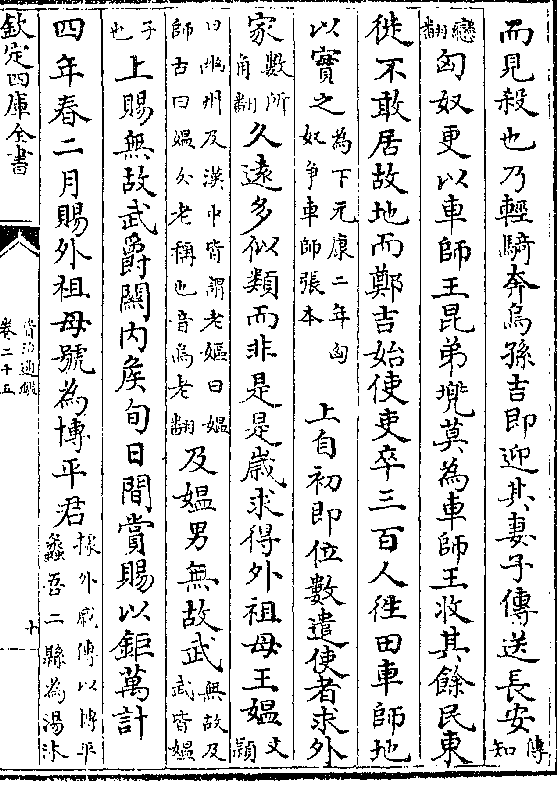 而見殺也乃輕騎奔烏孫吉即迎其妻子傳送長安傳知
戀翻匈奴更以車師王昆弟兠莫為車師王收其餘民東
徙不敢居故地而鄭吉始使吏卒三百人往田車師地
以實之為下元康二年匈奴爭車師張本上自初即位數遣使者求外
家數所角翻久遠多似類而非是是歲求得外祖母王媼文頴
曰幽州及漢中皆謂老嫗曰媼師古曰媼女老稱也音烏老翻及媼男無故武無故及武皆媼
子也上賜無故武爵關内侯旬日間賞賜以鉅萬計
四年春二月賜外祖母號為博平君據外戚傳以博平蠡吾二縣為湯沐
欽定四庫全書
資治通鑑
卷二十五
十